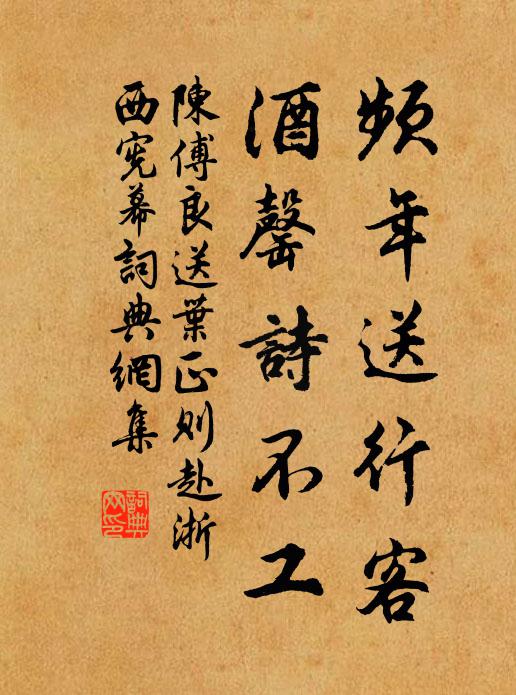 頻年送行客
酒罄詩不工
陳傅良送葉正則赴浙
西憲幕詞典網集
詞典網印